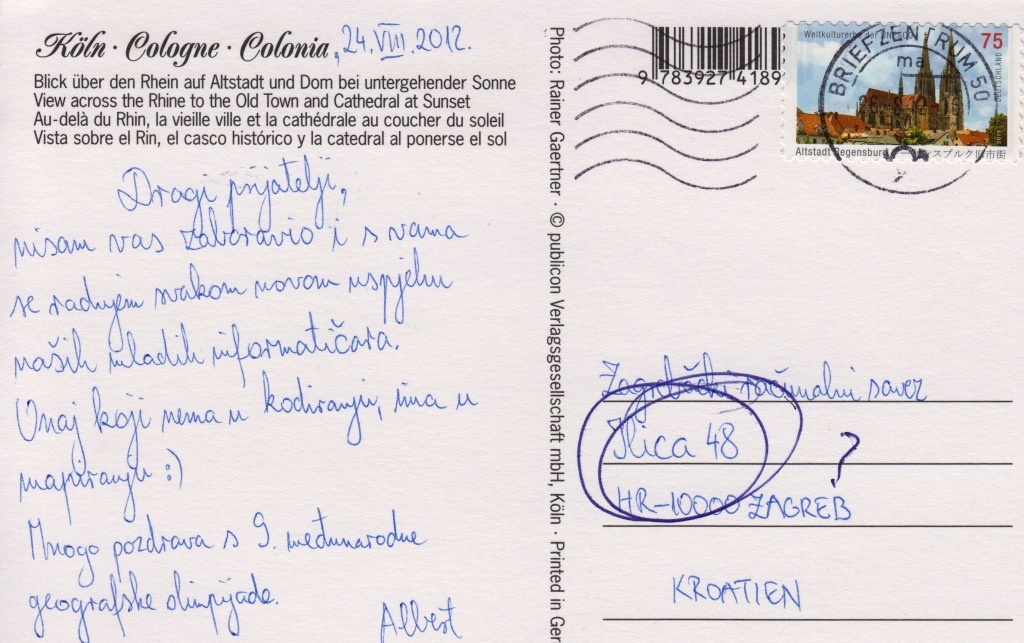 Köln · Cologne · Colonia, 24.VIII.2012.
Blick über den Rhein auf Altstadt und Dom bei untergehender Sonne
View across the Rhine to the Old Town and Cathedral at Sunset
Au-delà du Rhin, la vieille ville et la cathédrale au coucher du soleil
Vista sobre el Rin, el casco histórico y la catedral al ponerse el sol
Dragi prijatelji,
nisam vas zaboravio i s vama
se radujem svakom novom uspjehu
naših mladih informatičara.
Onaj koji nema u kodiranju, ima u
mapiranju :)
Mnogo pozdrava s 9. međunarodne
geografske olimpijade.
Albert
Photo: Rainer Gaertner · © publicon Verlagsgesellschaft mbH, Köln · Printed in Ger
9 783927 4189
Weltkulturerbe der UNESCO
75
DEUTSCHLAND
Altstadt Regensburg
BRIEFZENTRUM 50
ma
Zagrebački računalni savez
Ilica 48
?
HR-10000 ZAGREB
KROATIEN